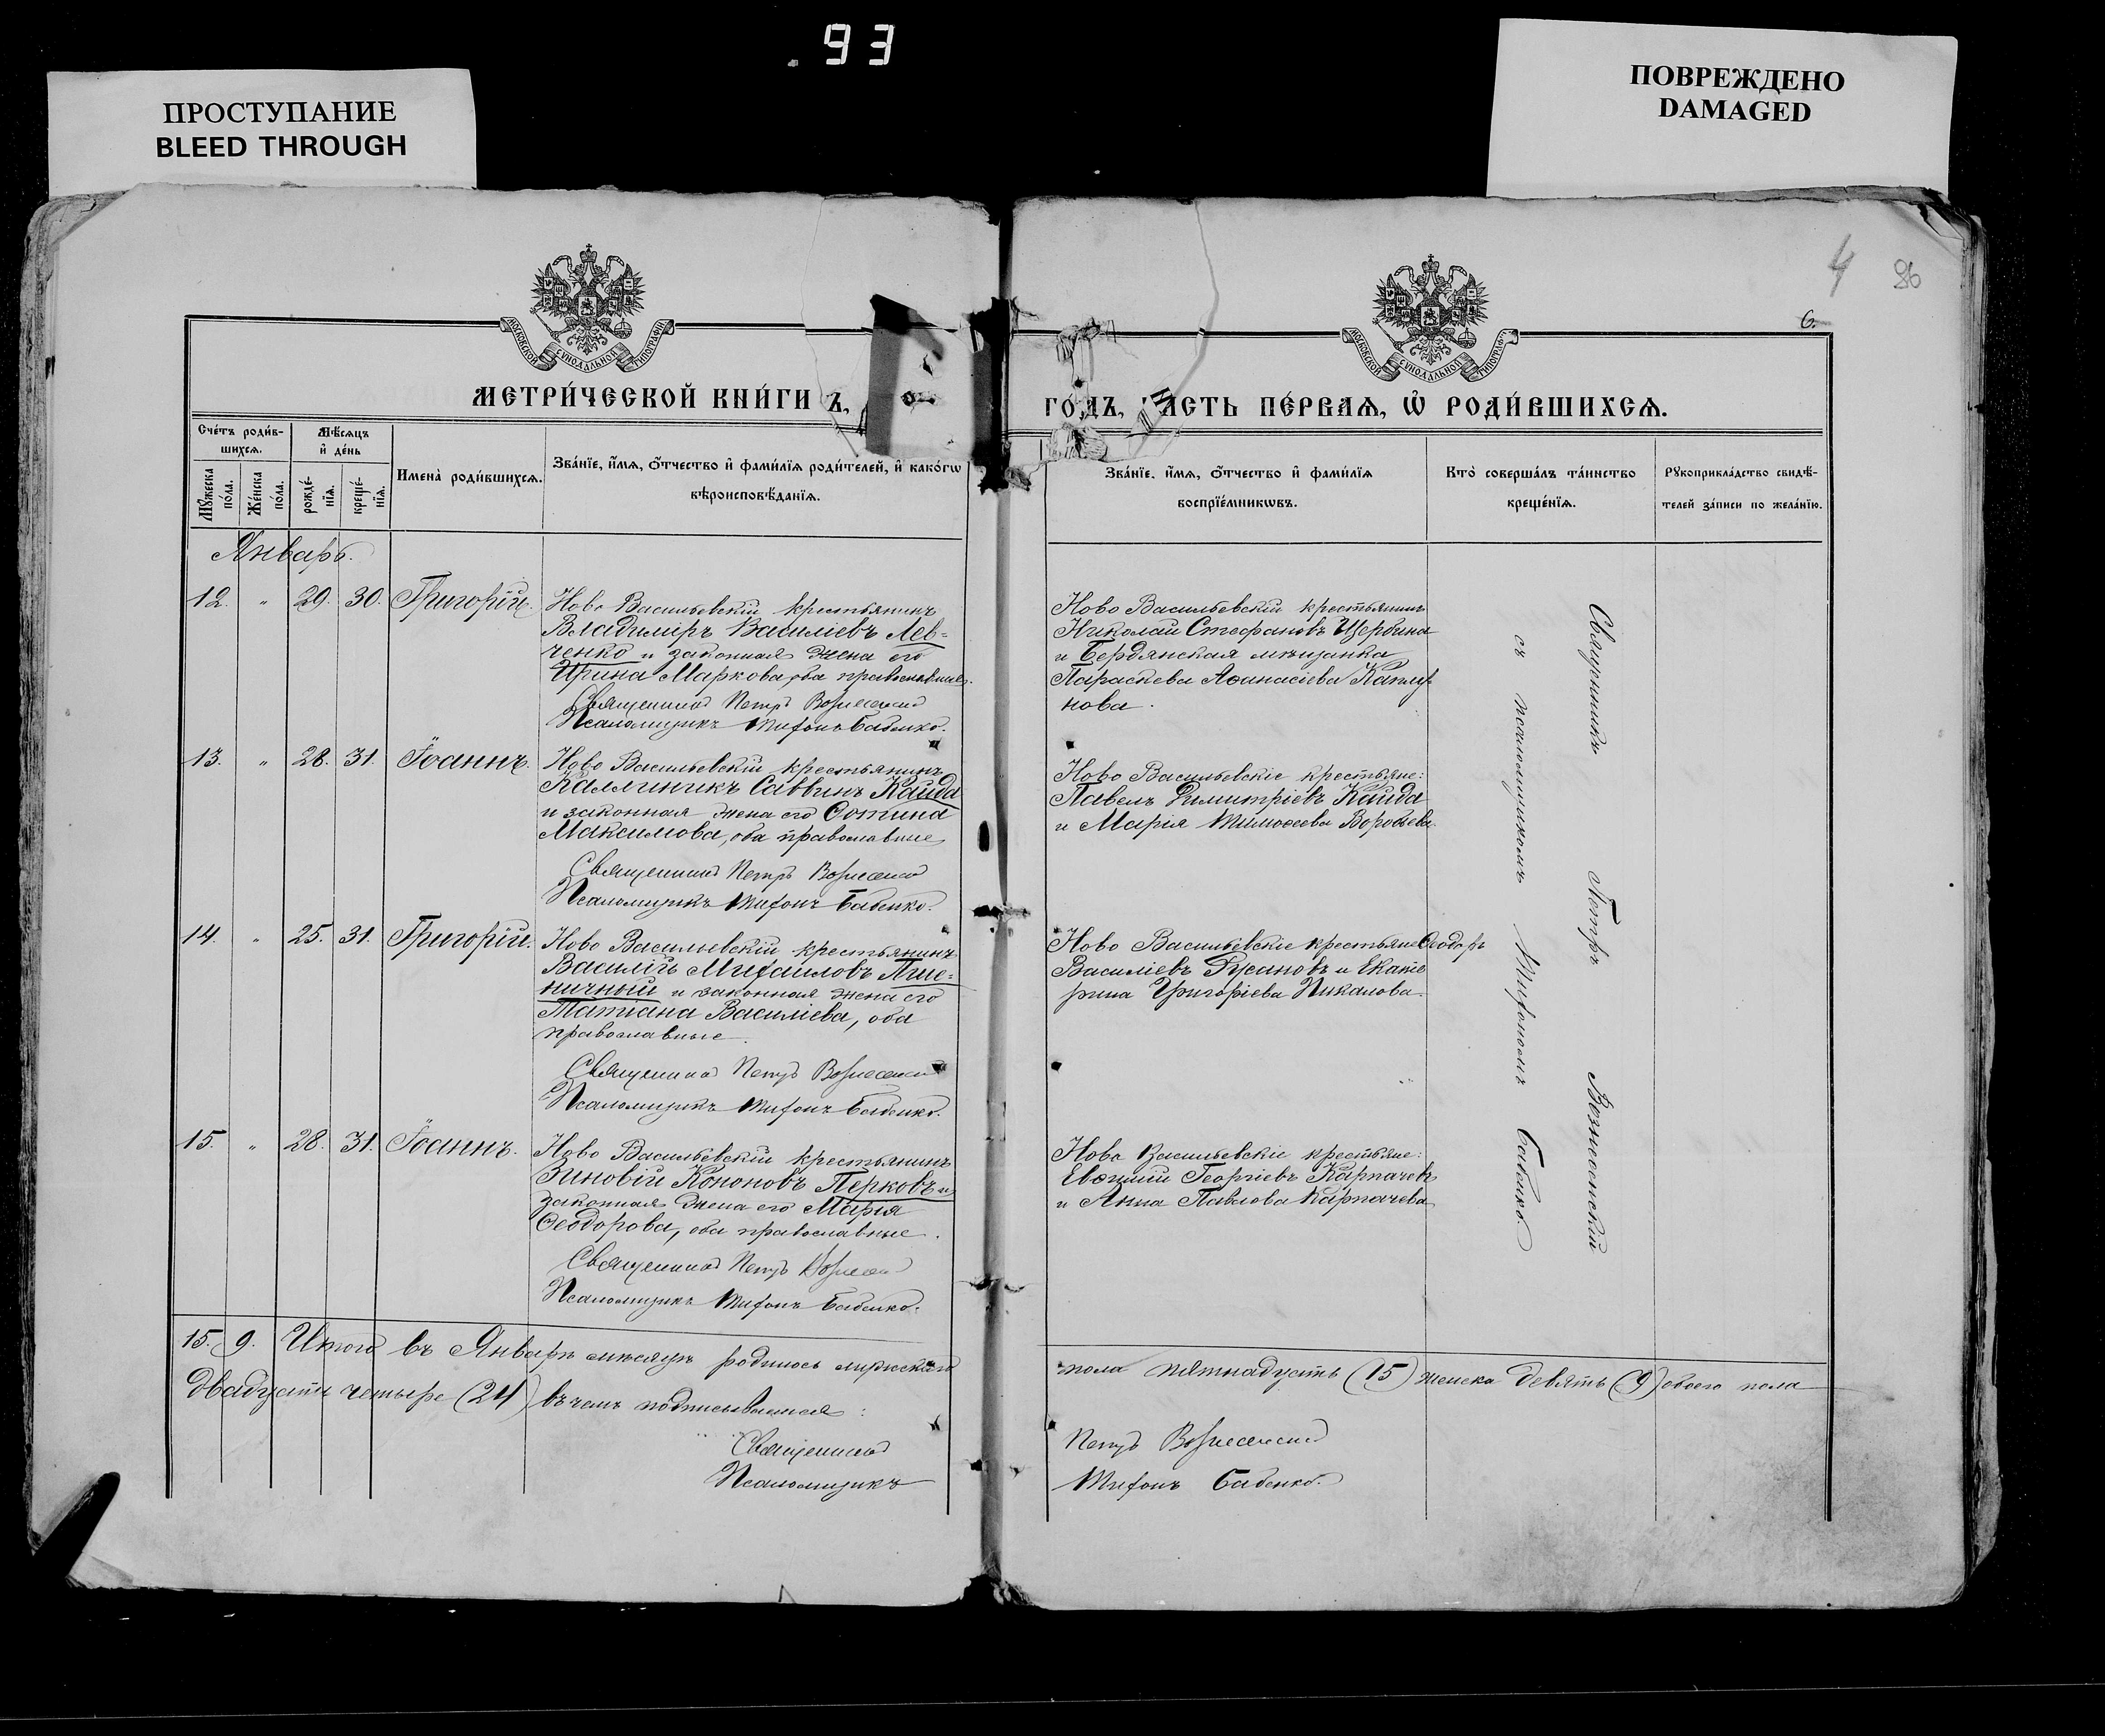 93
ПРОСТУПАНИЕ
BLEED THROUGH
ПОВРЕЖДЕНО
DAMAGED
4 86
6.
МОСКОВСКОЙ СѴНОДАЛЬНОЙ ТИПОГРАФІИ
МОСКОВСКОЙ СѴНОДАЛЬНОЙ ТИПОГРАФІИ
МЕТРИ́ЧЕСКОЙ КНИ́ГИ
ГОДЪ, ЧАСТЬ ПЕ́РВАѦ, Ѡ҆ РОДИ́ВШИХСѦ.
Сче́тъ роди́в-
шихсѧ.
Мѣ́сѧцъ
и҆ де́нь
Мꙋ́жеска по́ла.
Же́нска по́ла.
рожде́-
нїѧ.
креще́-
нїѧ.
Имена̀ роди́вшихсѧ.
Зва́нїе, и҆́мѧ, ѻ҆́тчество и҆ фами́лїѧ роди́телей, и҆ како́гѡ
вѣроисповѣ́данїѧ.
Зва́нїе, и҆́мѧ, ѻ҆́тчество и҆ фами́лїѧ
воспрїе́мникѡвъ.
Кто̀ соверша́лъ та́инство
креще́нїѧ.
Рꙋкоприкла́дство свидѣ́-
телей за́писи по жела́нїю.
Январь.
12. " 29. 30. Григорій.
Ново Васильевскій крестьянинъ
Владиміръ Василіевъ Лев-
ченко и законная жена его
Ирина Маркова, оба православные.
Священникъ Петръ Вознесенскій
Псаломщикъ Тифонъ Бабенко.
Ново Васильевскій крестьянинъ
Николай Стефановъ Щербина
и Бердянская мѣщанка
Параскева Аѳанасіева
нова.
13. " 28. 31. Іоаннъ.
Ново Васильевскій крестьянинъ
Каллиникъ Саввинъ Кайда
и законная жена его Фотина
Максимова, оба православные
Священникъ Петръ Вознесенскій
Псаломщикъ Тифонъ Бабенко.
Ново Васильевскіе крестьяне:
Павелъ Димитріевъ Кайда
и Марія Тимоѳеева Воробьева.
14. " 25. 31. Григорій.
Ново Васильевскій крестьянинъ
Василій Михаиловъ Пше-
ничный и законная жена его
Татіана Василіева, оба
православные.
Священникъ Петръ Вознесенскій
Псаломщикъ Тифонъ Бабенко.
Ново Васильевскіе крестьяне Ѳеодоръ
Василіевъ Русановъ и Екате
рина Григоріева Шикалова.
15. " 28. 31. Іоаннъ.
Ново Васильевскій крестьянинъ
Зиновій Кононовъ Перковъ и
законная жена его Марія
Ѳеодорова, оба православные.
Священникъ Петръ Вознесенскій
Псаломщикъ Тифонъ Бабенко.
Ново Васильевскіе крестьяне:
Евѳимій Георгіевъ Карпачевъ
и Анна Павлова Карпачева
Священникъ Петръ Вознесенскій
съ псаломщикомъ Тифономъ Бабенко.
15. 9. Итого въ Январѣ мѣсяцѣ родилось мужскаго пола пятнадцать (15) женска девять (9) обоего пола
двадцать четыре (24) въ чемъ подписываемся:
Священникъ Петръ Вознесенскій
Псаломщикъ Тифонъ Бабенко.